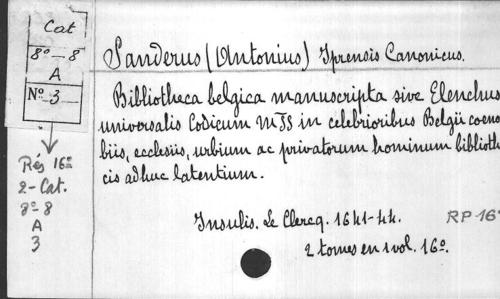 Cat
8º-8
A
Nº 3
Rés 16º
2-Cat.
8º-8
A
3
Sanderus (Antonius) Iprensis Canonicus.
Bibliotheca belgica manuscripta sive Elenchus
universalis Codicum MSS in celebrioribus Belgii coeno
biis, ecclesiis, urbium ac privatorum hominum biblioth
cis adhuc latentium.
Insulis. Le Clercq. 1641-44.
2 tomes en 1 vol. 16º.
RP-16